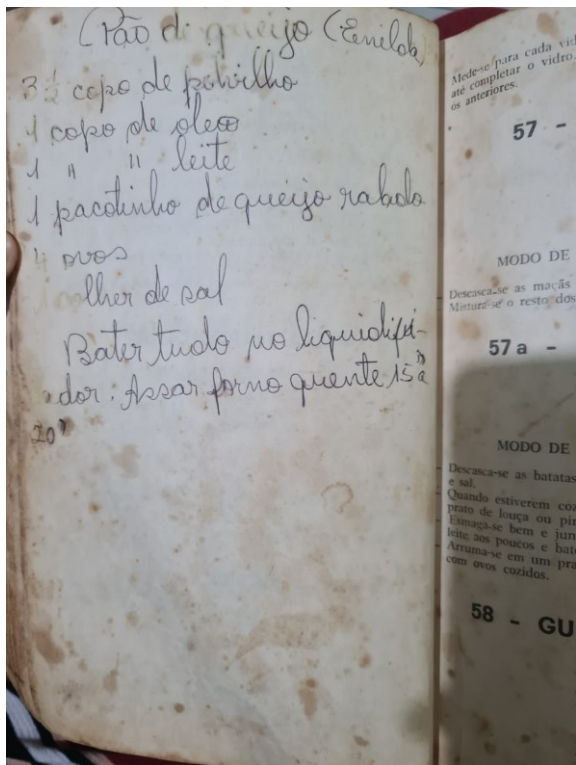 (Pão di queijo (Enilda)
3 1/2 copo de polvilho
1 copo de oleo
1 " " leite
1 pacotinho de queijo ralado
4 ovos
colher de sal
Bater tudo no liquidifi-
dor. Assar forno quente 15" a
20"
Mede-se para cada vid
até completar o vidro.
os anteriores.
57 -
MODO DE
Descasca-se as maçãs
Mistura-se o resto dos
57 a -
MODO DE
Descasca-se as batatas
e sal.
Quando estiverem coz
prato de louça ou pir
Esmaga-se bem e jun
leite aos poucos e bate
Arruma-se em um pra
com ovos cozidos.
58 - GU